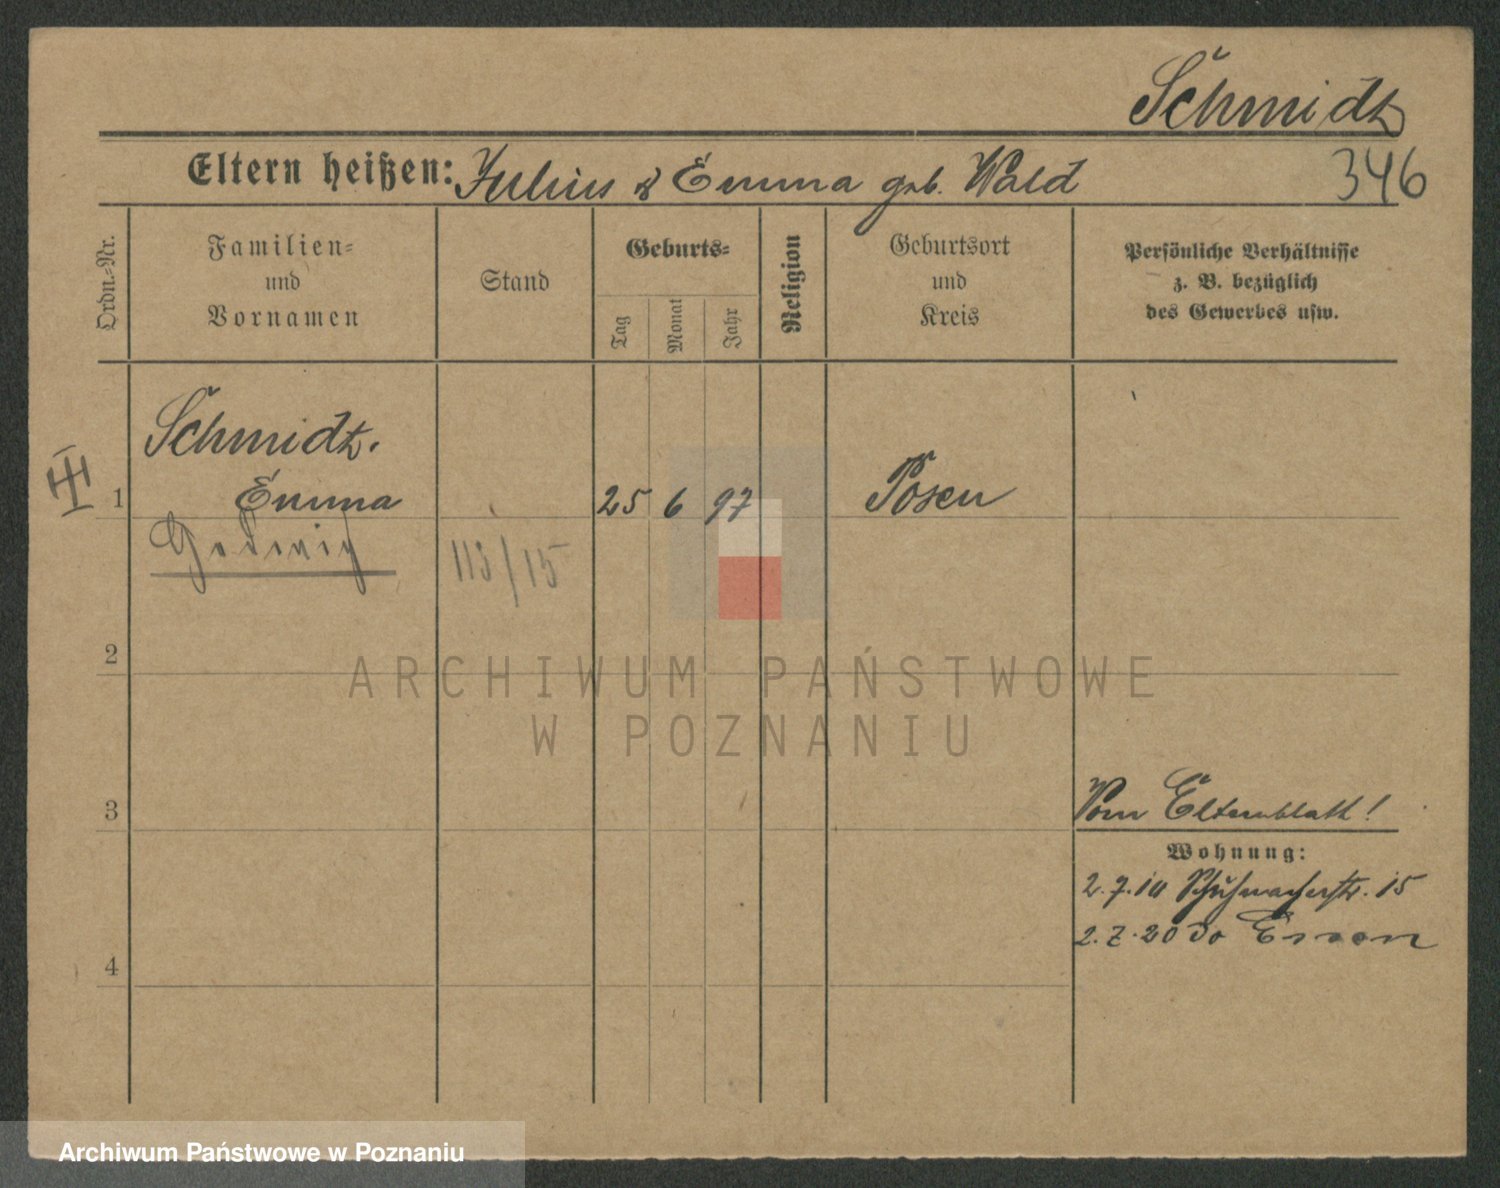 Schmidt
Eltern heißen: Julius & Emma geb. Wald 346
Ordn.-Nr.
Familien-
und
Vornamen
Stand
Geburts-
Tag
Monat
Jahr
Religion
Geburtsort
und
Kreis
Persönliche Verhältnisse
z. B. bezüglich
des Gewerbes usw.
Schmidt.
III 1 Emma 25 6 97 Posen
113/15
2
ARCHIWUM PAŃSTWOWE
W POZNANIU
3 Vom Elternblatt!
Wohnung:
2.7.14 Schuhmacherstr. 15
2.7.20 do Essen
4
Archiwum Państwowe w Poznaniu